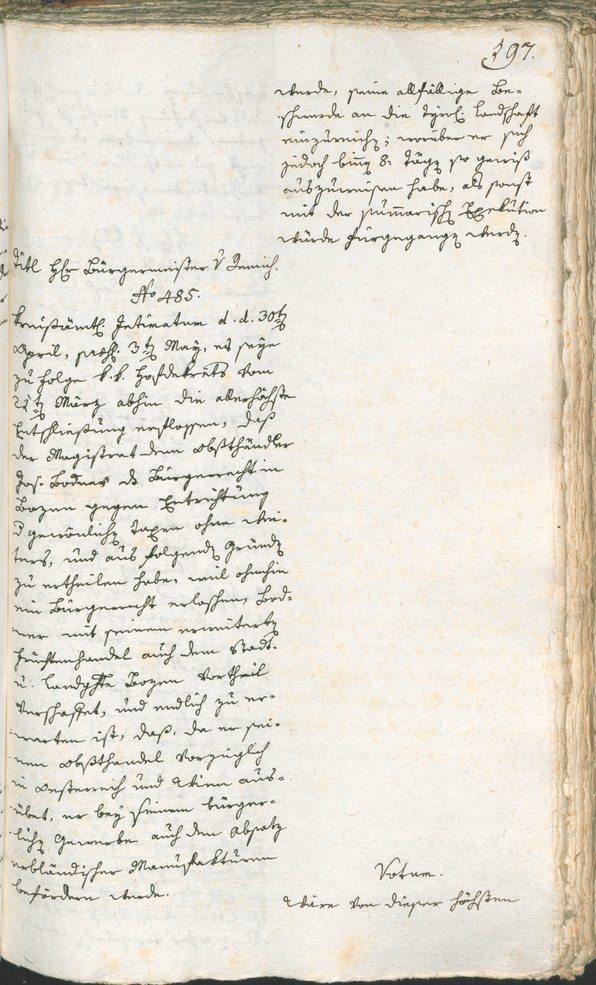 197.
werde, seine allfällige Be-
schwerde an die tyrol. Landschaft
einzureichen; worüber er sich
jedoch binnen 8: Tägen so gewiß
auszuweisen habe, als sonst
mit der summarischen Exekution
würde fürgegangen werden.
Titl Hr Bürgermeister v
No 485.
Kreisämtl. Intimatum d. d. 30ten
April, 3ten May, es seye
zu Folge k. k. Hofdekrets vom
März abhin die allerhöchste
Entschließung erflossen, daß
der Magistrat dem Obsthändler
Jos. Bodner ds Bürgerrecht in
Bozen gegen Entrichtung
d gewönlichen Taxen ohne wei-
ters, und aus folgenden Gründen
zu ertheilen habe, weil ohnehin
ein Bürgerrecht erloschen, Bod-
ner mit seinem erweiterten
Früchtenhandel auch dem Stadt-
u. Landgchte Bozen Vortheil
verschaffet, und endlich zu er-
warten ist, daß, da er sei-
nen Obsthandel vorzüglich
in Oesterreich und Wien aus-
übet, er bey seinem bürger-
lichen Gewerbe auch den Absatz
erbländischer Manufakturen
befördern werde.
Votum.
Wäre von dieser höchsten